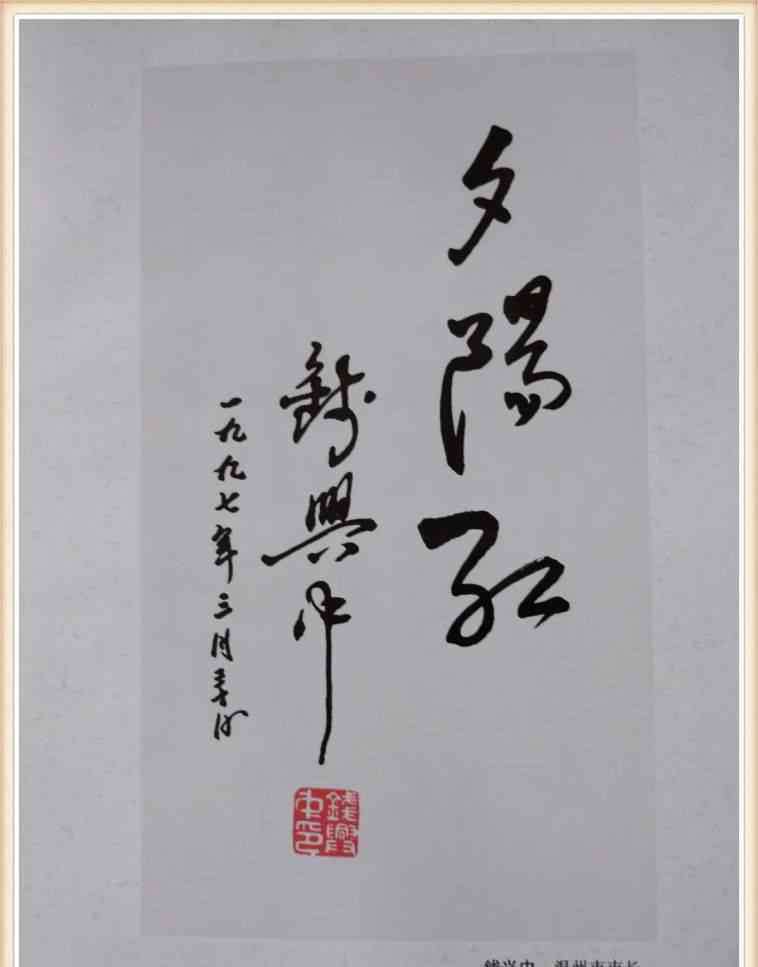 夕陽红
錢興中
一九九七年三月春於
錢興中印
钱兴中 温州市市长